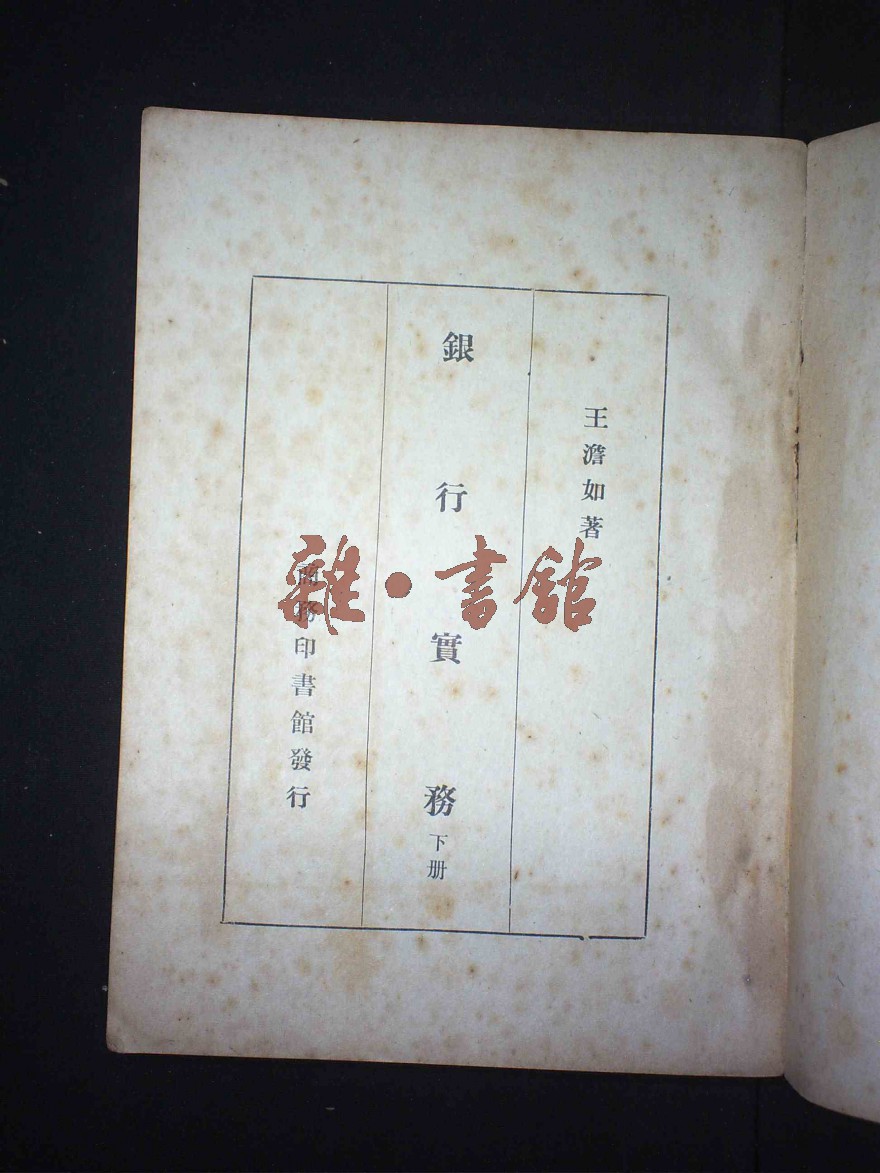 王澹如著
銀行實務 下册
商務印書館發行
雜·書館